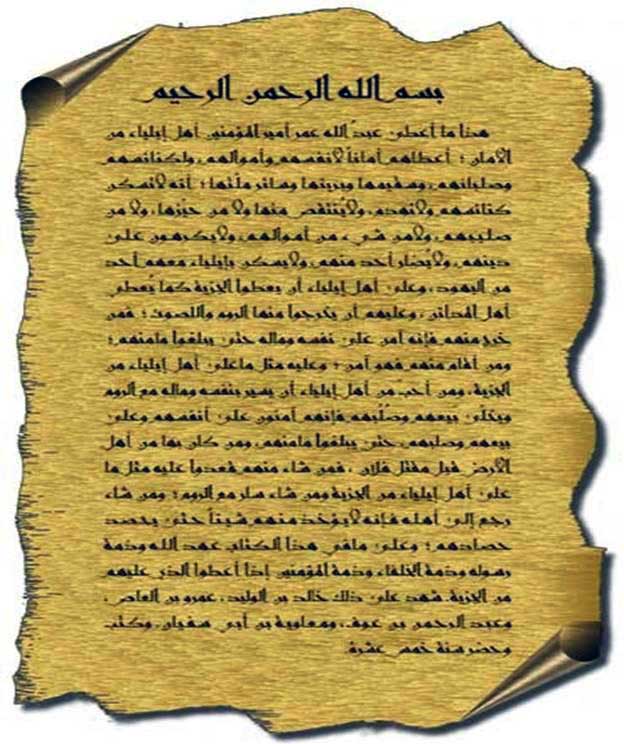 بسم الله الرحمن الرحيم
هذا ما أعطى عبدُ الله عمر أمير المؤمنين أهل إيلياء من
الأمان؛ أعطاهم أماناً لأنفسهم وأموالهم، ولكنائسهم
وصلبانهم، وسقيمها وبريئها وسائر ملّتها؛ أنه لا تسكن
كنائسهم ولا تهدم، ولا يُنتقص منها ولا من حيّزها، ولا من
صليبهم، ولا من شيء من أموالهم، ولا يكرهون على
دينهم، ولا يُضار أحد منهم، ولا يسكن بإيلياء معهم أحد
من اليهود، وعلى أهل إيلياء أن يعطوا الجزية كما يُعطي
أهل المدائن، وعليهم أن يخرجوا منها الروم واللصوت؛ فمن
خرج منهم فإنه آمن على نفسه وماله حتى يبلغوا مأمنهم؛
ومن أقام منهم فهو آمن؛ وعليه مثل ما على أهل إيلياء من
الجزية، ومن أحبّ من أهل إيلياء أن يسير بنفسه وماله مع الروم
ويخلّي بيَعهم وصلُبهم فإنهم آمنون على أنفسهم وعلى
بيعهم وصلبهم، حتى يبلغوا مأمنهم، ومن كان بها من أهل
الأرض قبل مقتل فلان، فمن شاء منهم قعدوا عليه مثل ما
على أهل إيلياء من الجزية ومن شاء سار مع الروم؛ ومن شاء
رجع إلى أهله فإنه لا يؤخذ منهم شيئاً حتى يحصد
حصادهم؛ وعلى ما في هذا الكتاب عهد الله وذمة
رسوله وذمة الخلفاء وذمة المؤمنين إذا أعطوا الذي عليهم
من الجزية. شهد على ذلك خالد بن الوليد، عمرو بن العاص،
وعبد الرحمن بن عوف، ومعاوية بن أبي سفيان. وكتب
وحضر سنة خمس عشرة.